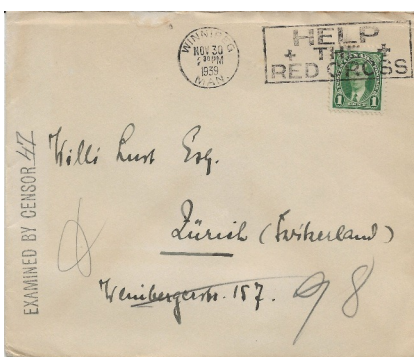 WINNIPEG
NOV 30
PM
1939
MAN.
HELP
THE
RED CROSS
1
EXAMINED BY CENSOR 47
Willi Lust Esq.
Zürich (Switzerland)
Weinbergerstr. 157.
98